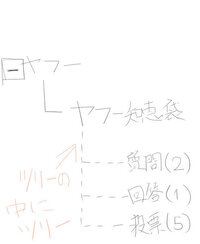 ヤフー
ヤフー知恵袋
質問(2)
回答(1)
投票(5)
ツリーの
中に
ツリー